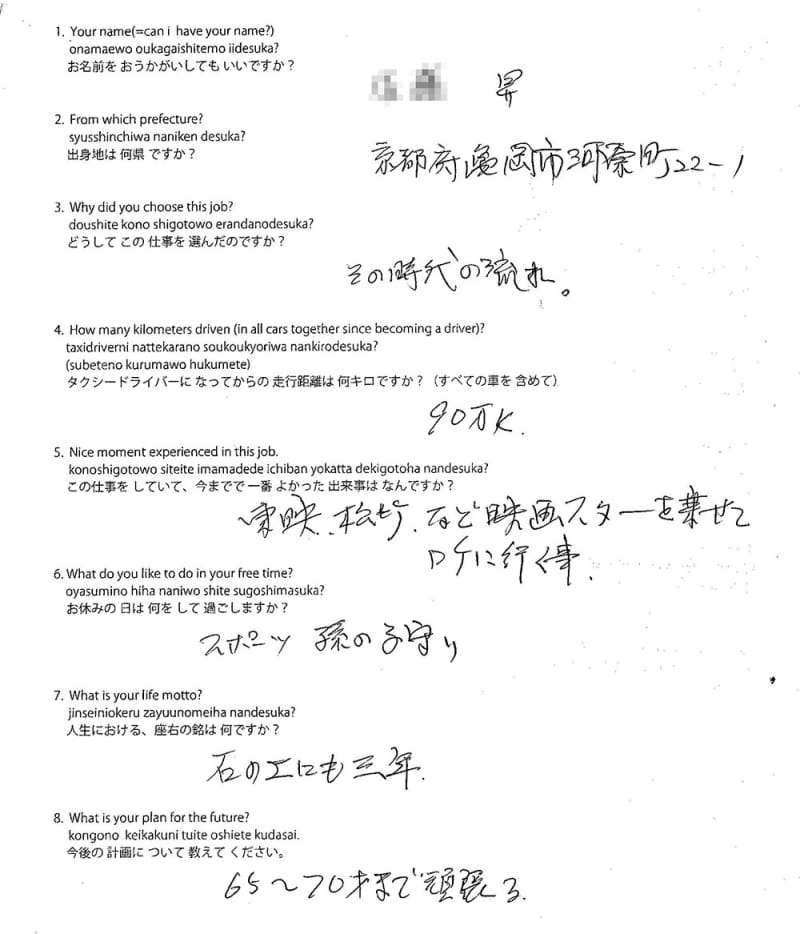 1. Your name(=can i have your name?)
onamaewo oukagaishitemo iidesuka?
お名前を おうかがいしても いいですか？
昇
2. From which prefecture?
syusshinchiwa naniken desuka?
出身地は 何県 ですか？
京都府亀岡市河原町22-1
3. Why did you choose this job?
doushite kono shigotowo erandanodesuka?
どうして この 仕事を 選んだのですか？
その時代の流れ。
4. How many kilometers driven (in all cars together since becoming a driver)?
taxidriverni nattekarano soukoukyoriwa nankirodesuka?
(subeteno kurumawo hukumete)
タクシードライバーに なってからの 走行距離は 何キロですか？（すべての車を 含めて）
90万K.
5. Nice moment experienced in this job.
konoshigotowo siteite imamadede ichiban yokatta dekigotoha nandesuka?
この仕事を していて、今までで 一番 よかった 出来事は なんですか？
東映、松竹、など映画スターを乗せて
ロケに行く事.
6. What do you like to do in your free time?
oyasumino hiha naniwo shite sugoshimasuka?
お休みの 日は 何を して 過ごしますか？
スポーツ 孫の子守り
7. What is your life motto?
jinseiniokeru zayuunomeiha nandesuka?
人生における、座右の銘は 何ですか？
石の上にも三年.
8. What is your plan for the future?
kongono keikakuni tuite oshiete kudasai.
今後の 計画に ついて 教えて ください。
65〜70才まで頑張る.